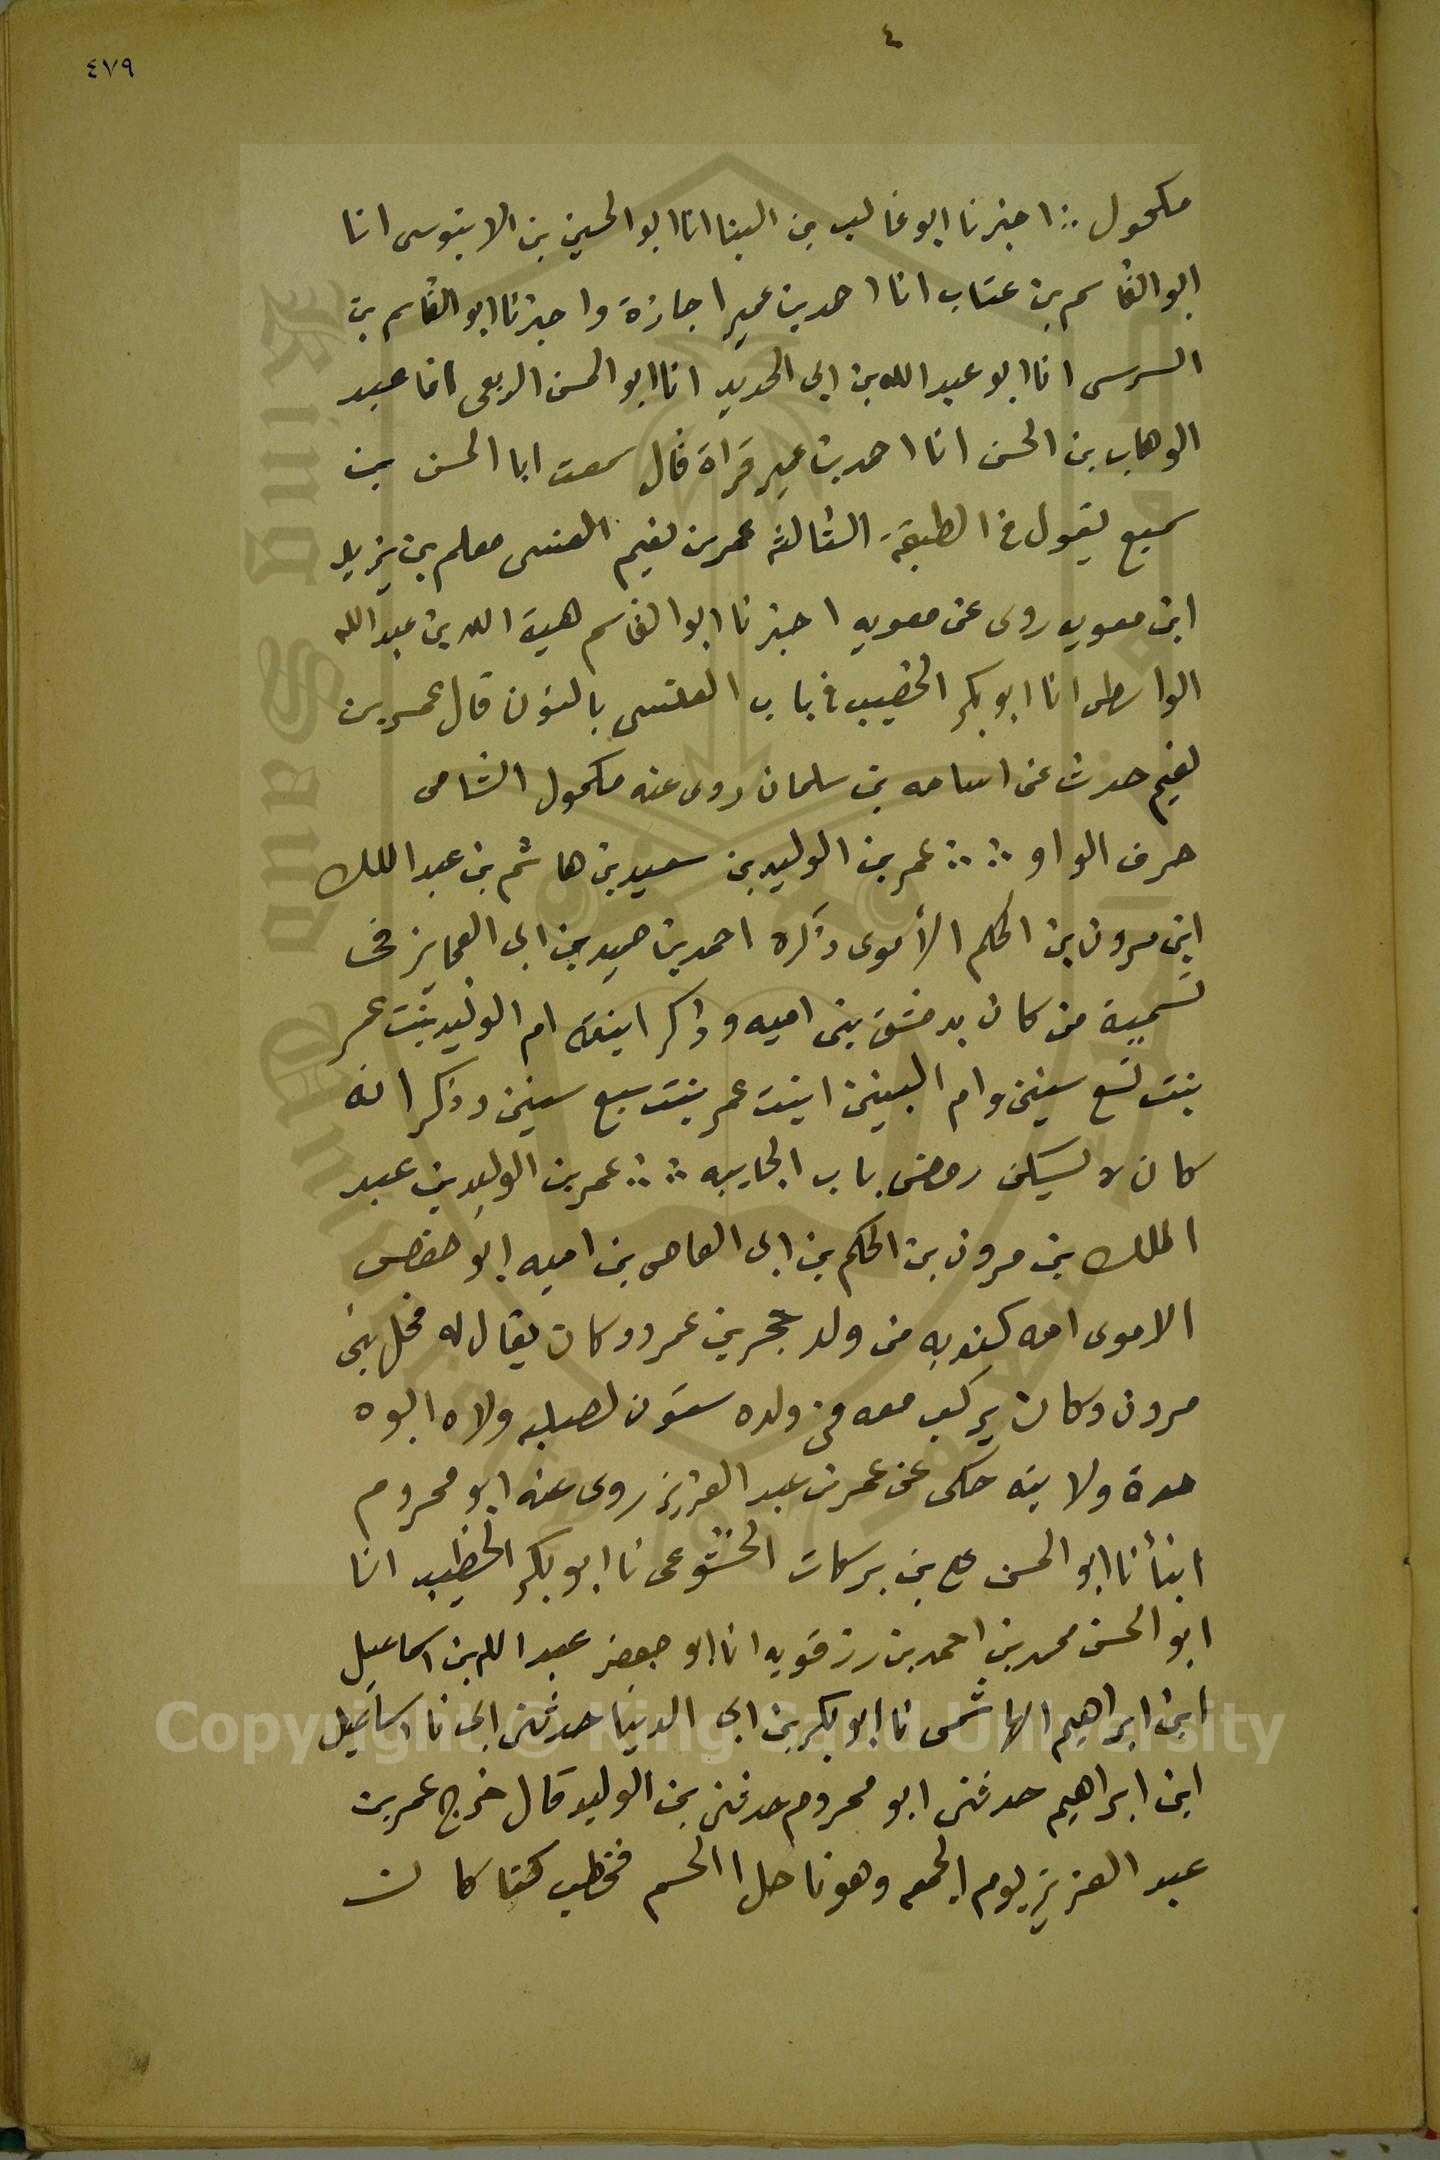 ٤
٤٧٩
مكحول ∴ اخبرنا ابو غالب بن البنا انا ابو الحسين بن الابنوسى انا
ابو القاسم بن عتاب انا احمد بن عمير اجازة واخبرنا ابو القاسم بن
السوسى انا ابو عبد الله بن ابى الحديد انا ابو الحسن الربعى انا عبد
الوهاب بن الحسن انا احمد بن عمير قراة قال سمعت ابا الحسن بن
سميع يقول فى الطبقة الثالثه عمر بن نعيم العنسى معلم بن يزيد
ابن معويه روى عن معويه اخبرنا ابو القاسم هبة الله بن عبد الله
الواسطى انا ابو بكر الخطيب فى باب العنسى بالنون قال عمر بن
نعيم حدث عن اسامه بن سلمان روى عنه مكحول الشامى
حرف الواو ∴ ∴ عمر بن الوليد بن سعيد بن هاشم بن عبد الملك
ابن مرون بن الحكم الأموى ذكره احمد بن حميد بن ابى العجايز فى
تسمية من كان بدمشق بنى اميه وذكر ابنته ام الوليد بنت عمر
بنت تسع سنين وام البنين ابنت عمر بنت سبع سنين وذكر انه
كان لا يسكن ربض باب الجابيه ∴ ∴ عمر بن الوليد بن عبد
الملك بن مرون بن الحكم بن ابى العاصى بن اميه ابو حفص
الاموى امه كنديه من ولد حجر بن عمرو وكان يقال له فحل بنى
مرون وكان يركب معه من ولده ستون لصلبه ولاه ابوه
حدة ولا بنه حكى عن عمر بن عبد العزيز روى عنه ابو محروم
انبأنا ابو الحسن على بن بركات الخشوعى نا ابو بكر الخطيب انا
ابو الحسن محمد بن احمد بن رزقويه انا ابو جعفر عبد الله بن اسماعيل
ابن ابراهيم الهاشمى نا ابو بكر بن ابى الدنيا حدثنى ابى نا اسماعيل
ابن ابراهيم حدثنى ابو محروم حدثنى بن الوليد قال خرج عمر بن
عبد العزيز يوم الجمعه وهو ناحل الجسم فخطب كما كان
Copyright © King Saud University
King Saud University